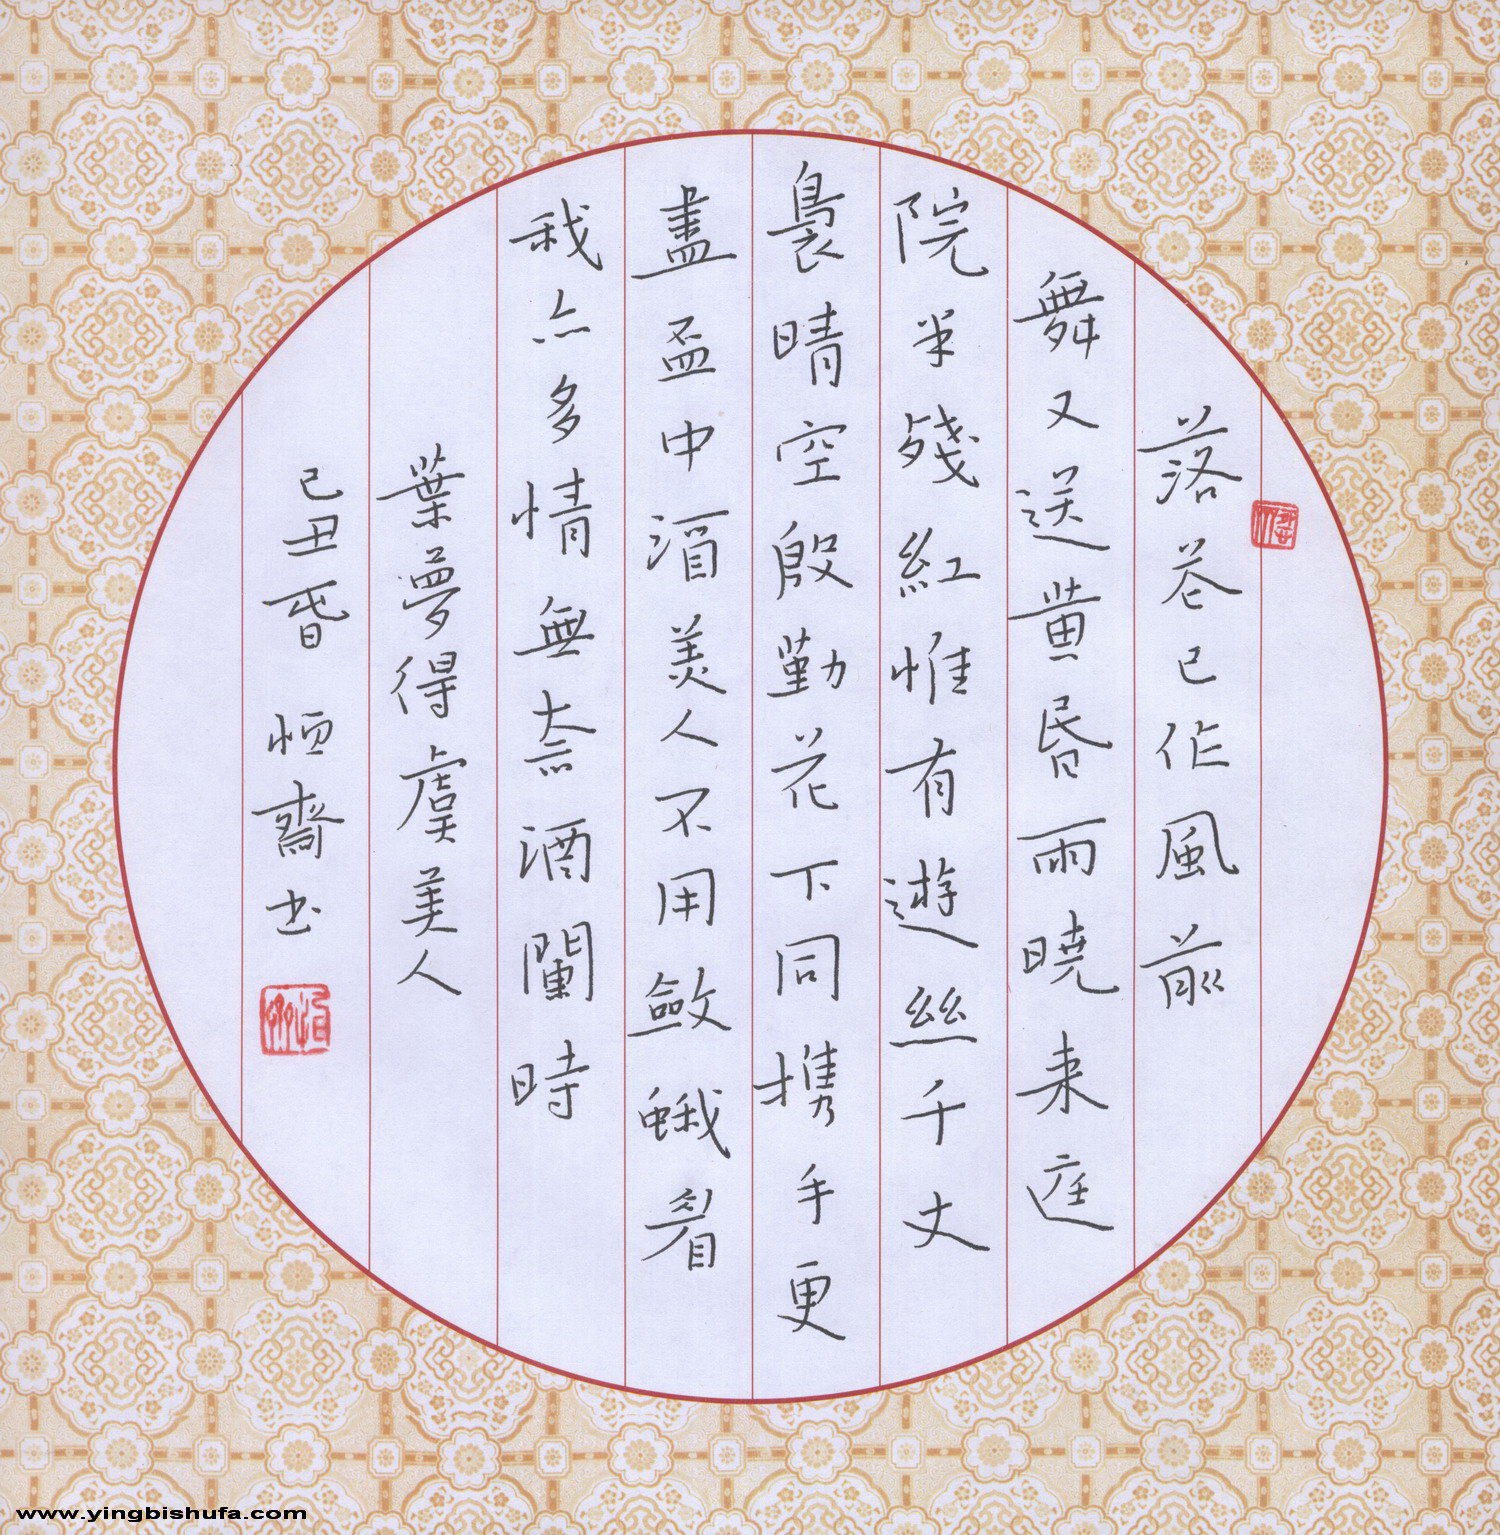 落花已作風前
舞又送黃昏雨曉來庭
院半殘紅惟有遊絲千丈
裊晴空殷勤花下同攜手更
盡盃中酒美人不用斂蛾眉
我亦多情無奈酒闌時
葉夢得虞美人
己丑春 恒齋书
www.yingbishufa.com